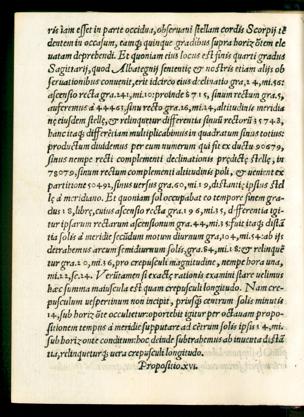 ris iam esset in parte occidua, obseruaui stellam cordis Scorpij tē
dentem in occasum, eamq́; quinque gradibus supra horizōtem ele
uatam deprehendi. Et quoniam eius locus est finis quarti gradus
Sagittarij, quod Albategnij sententię & nostris etiam alijs ob
seruationibus conuenit, erit idcirco eius declinatio gra, 24, mi. 50:
ascensio recta gra. 241, mi. 10: proinde 8715, sinum rectum gra. 5,
auferemus à 44463, sinu recto gra. 26, mi. 24, altitudinis meridia
nę eiusdem stellę, & relinquetur differentia sinuū rectorū 35748,
hanc itaq́; differētiam multiplicabimus in quadratum sinus totius:
productum diuidemus per eum numerum qui fit ex ductu 90679,
sinus nempe recti complementi declinationis prędictę stellę, in
78079, sinum rectum complementi altitudinis poli, & ueniet ex
partitione 50492, sinus uersus gra. 60, mi. 19, distantię ipsius stel
lę à meridiano. Et quoniam sol occupabat eo tempore finem gra-
dus 18, librę, cuius ascensio recta gra. 196, mi. 35, differentia igi-
tur ipsarum rectarum ascensionum gra. 44, mi. 35 fuit itaq́; distā
tia solis à meridie secūdum motum diurnum gra, 104, mi. 54: ab ijs
detrahemus arcum semidiurnum solis, gra. 84, mi. 18: & relinquē
tur gra. 20, mi. 36, pro crepusculi magnitudine, nempe hora una,
mi. 22, se. 24. Verūtamen si exactę rationis examini stare uelimus
hæc summa maiuscula est quam crepusculi longitudo. Nam cre-
pusculum uespertinum non incipit, priusq̃; centrum solis minutis
14, sub horizōte occuletur: oportebit igitur per octauam propo-
sitionem tempus à meridie supputare ad cētrum solis ipsis 14, mi.
sub horizonte conditum: hoc deinde subtrahemus ab inuenta distā
tia, relinqueturq́; uera crepusculi longitudo.
Propositio. xvi.